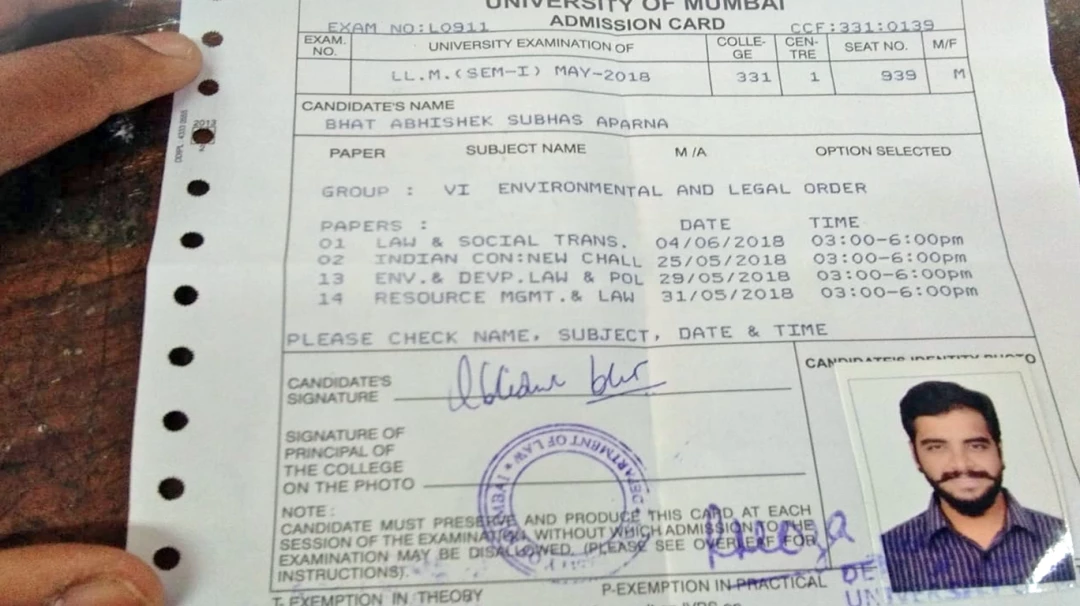 UNIVERSITY OF MUMBAI
EXAM NO:L0911 ADMISSION CARD CCF:331:0139
EXAM. NO. UNIVERSITY EXAMINATION OF COLLE-GE CEN-TRE SEAT NO. M/F
LL.M.(SEM-I) MAY-2018 331 1 939 M
CANDIDATE'S NAME
BHAT ABHISHEK SUBHAS APARNA
PAPER SUBJECT NAME M/A OPTION SELECTED
GROUP : VI ENVIRONMENTAL AND LEGAL ORDER
PAPERS : DATE TIME
01 LAW & SOCIAL TRANS. 04/06/2018 03:00-6:00pm
02 INDIAN CON:NEW CHALL 25/05/2018 03:00-6:00pm
13 ENV.& DEVP.LAW & POL 29/05/2018 03:00-6:00pm
14 RESOURCE MGMT.& LAW 31/05/2018 03:00-6:00pm
PLEASE CHECK NAME, SUBJECT, DATE & TIME
CANDIDATE'S IDENTITY PHOTO
CANDIDATE'S
SIGNATURE
SIGNATURE OF
PRINCIPAL OF
THE COLLEGE
ON THE PHOTO
DEPARTMENT OF LAW
NOTE :
CANDIDATE MUST PRESERVE AND PRODUCE THIS CARD AT EACH
SESSION OF THE EXAMINATION WITHOUT WHICH ADMISSION TO THE
EXAMINATION MAY BE DISALLOWED. (PLEASE SEE OVERLEAF FOR
INSTRUCTIONS).
T-EXEMPTION IN THEORY P-EXEMPTION IN PRACTICAL